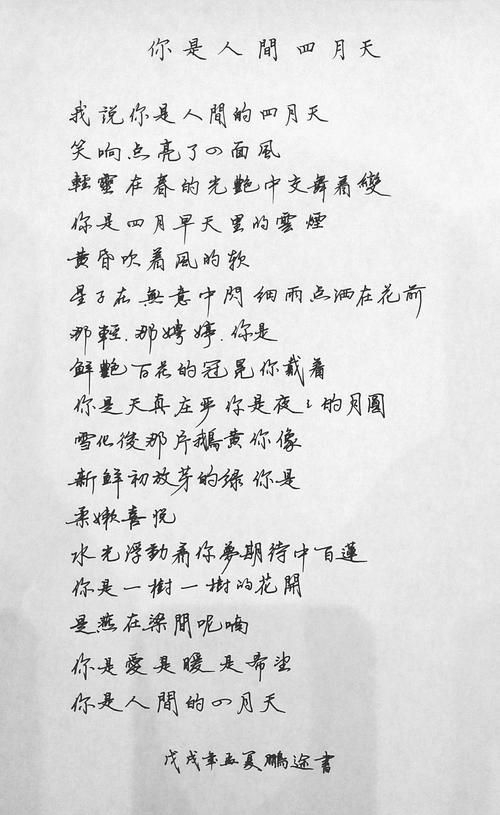 你是人間四月天
我说你是人間的四月天
笑响点亮了四面風
輕靈在春的光艷中交舞着變
你是四月早天里的雲煙
黄昏吹着風的软
星子在無意中閃细雨点洒在花前
那輕.那娉婷.你是
鲜艷百花的冠冕你戴着
你是天真庄严你是夜々的月圓
雪化後那片鵝黄你像
新鲜初放芽的绿你是
柔嫩喜悦
水光浮動着你夢期待中百蓮
你是一樹一樹的花開
是燕在梁間呢喃
你是愛是暖是希望
你是人間的四月天
戊戌年孟夏鵬途書